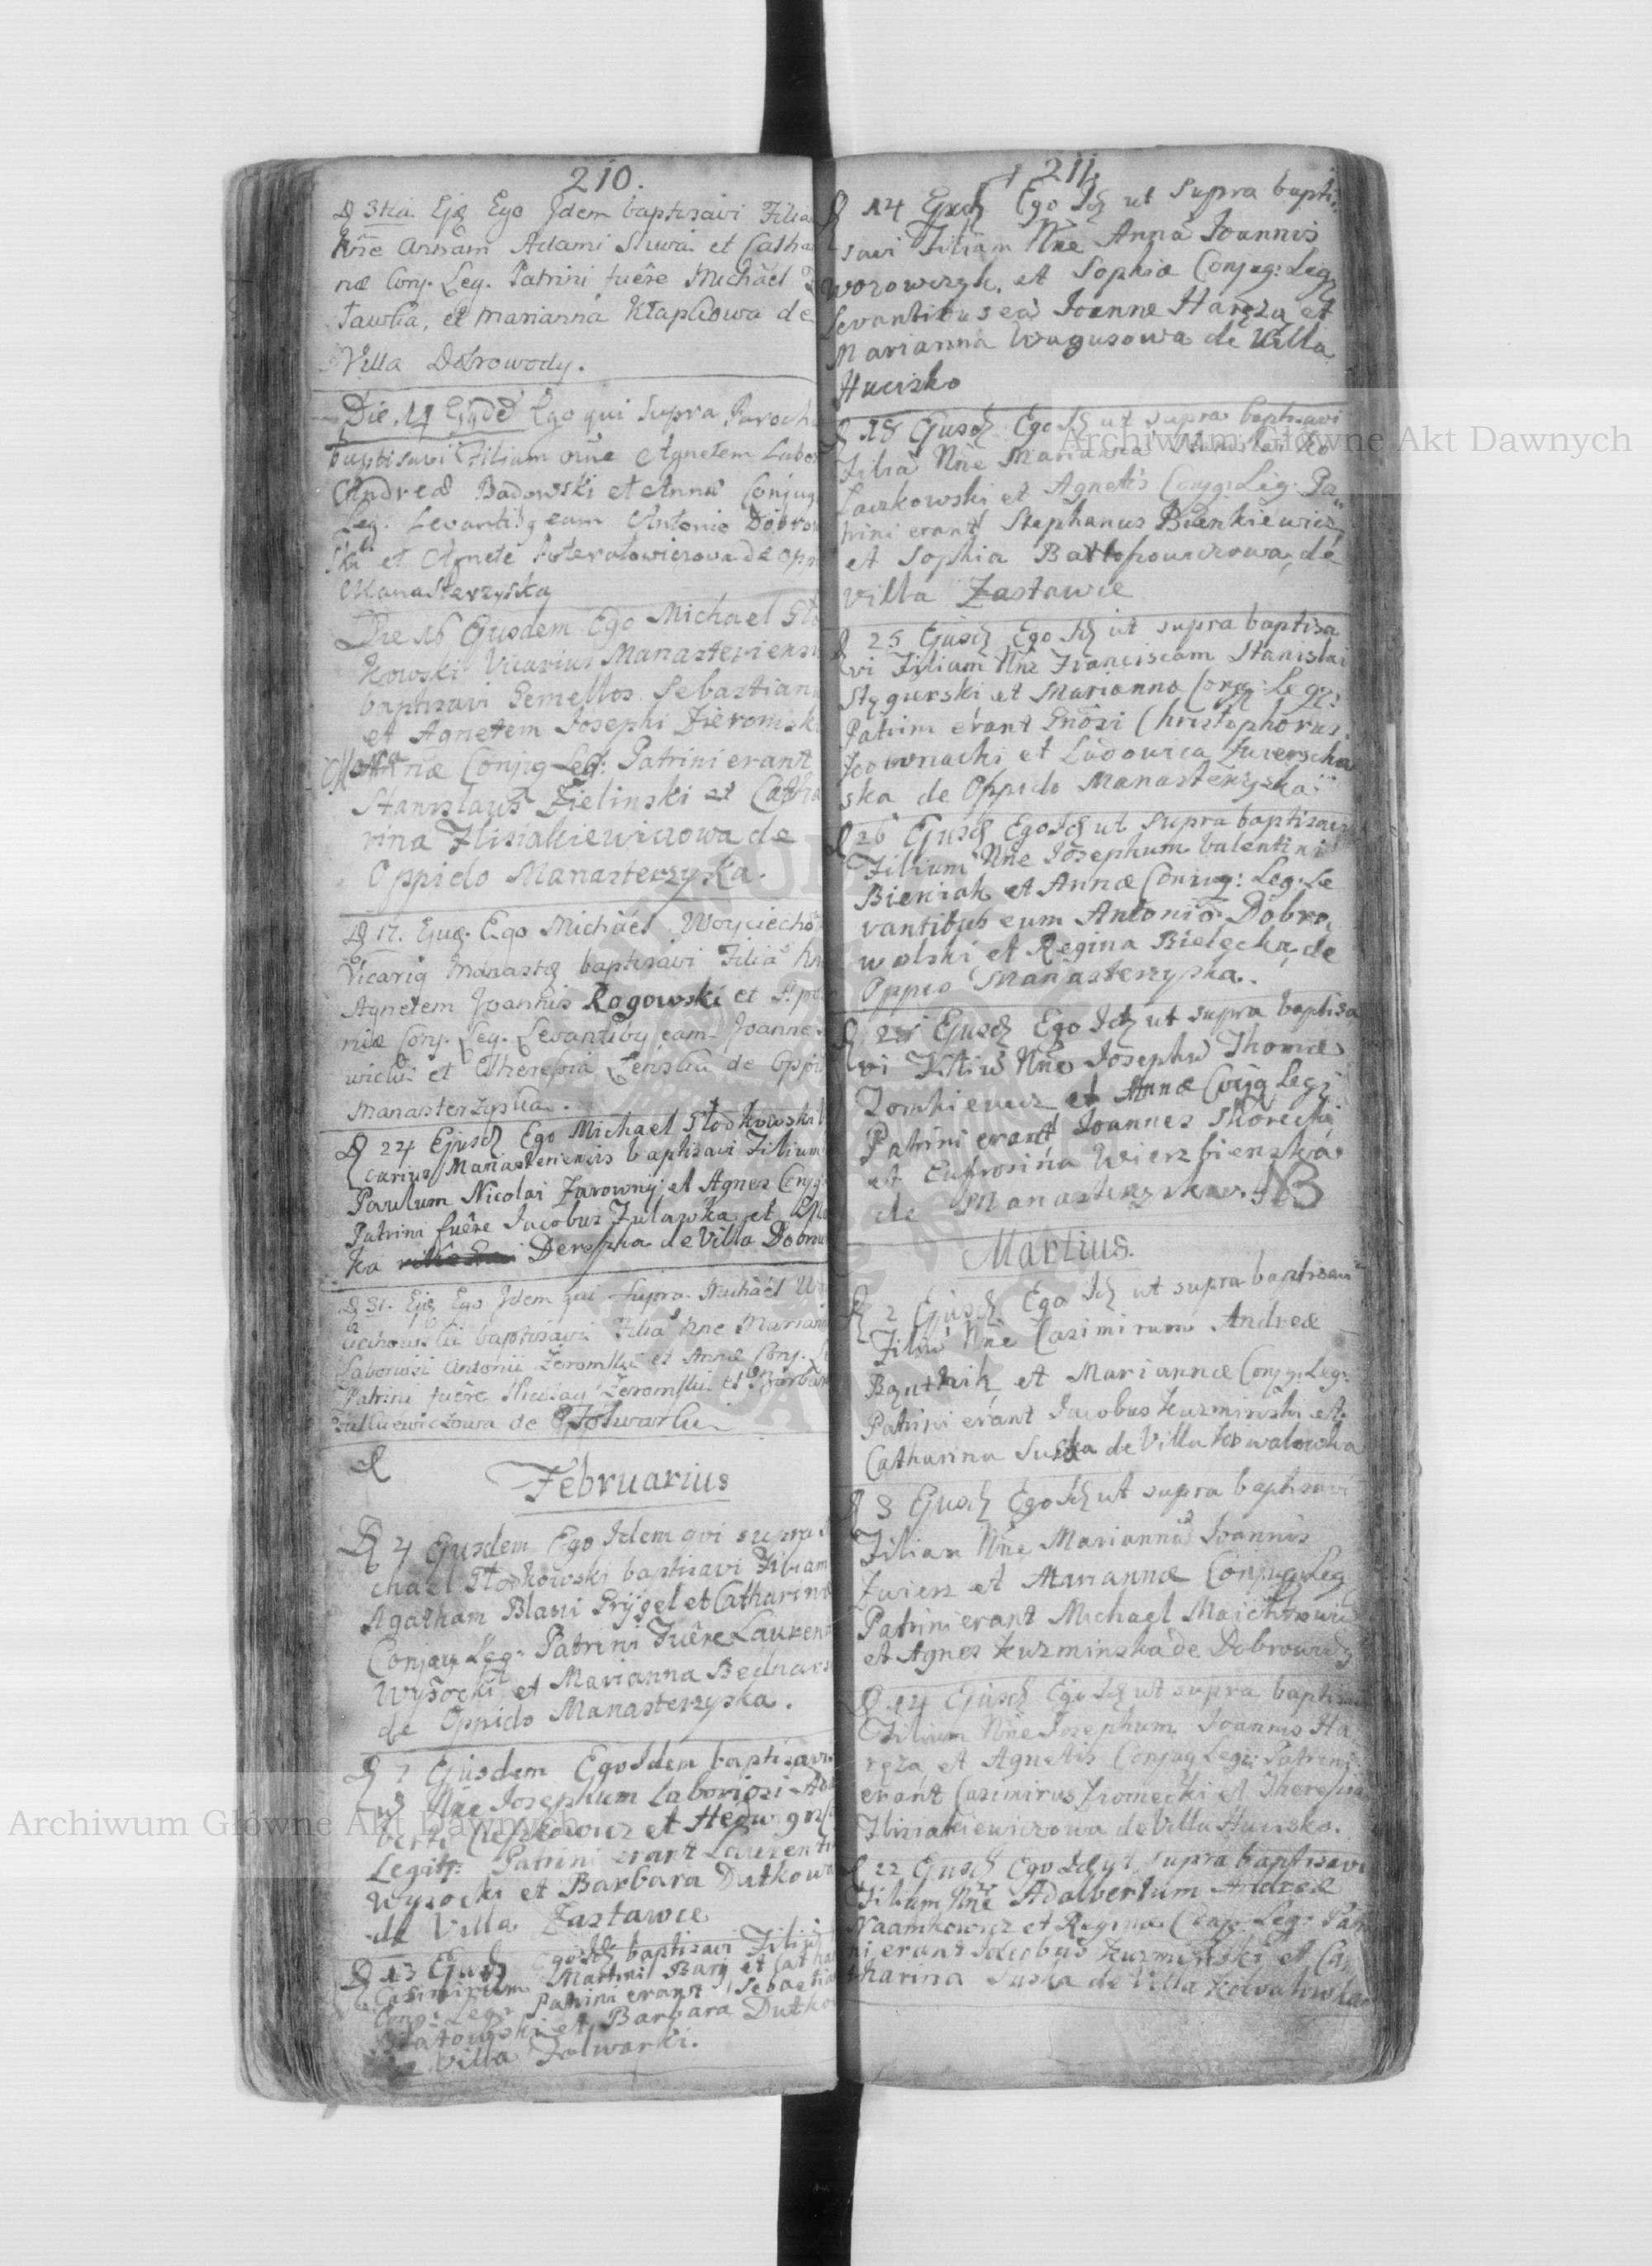 210.
D 3tia Ejg Ego Idem baptisavi Filia
Nne Annam Adami Sluwa et Catha
næ Conj. Leg. Patrini fuêre Michael
Tawka, et Marianna Kłapkowa de
Villa Dobrowody.
Die 14 Ejgdē Ego qui supra Paroch
baptisavi Filiam nne Agnetem Labor
Andreæ Badowski et Annæ Conjug
Leg. Levantibg eam Antonio Dobrow
ski et Agnete
Manasterzyska
Die 16 Ejusdem Ego Michael Sło
kowski Vicarius Manasteriens
baptisavi Gemellos Sebastianu
et Agnetem Josephi Zieromski
Mariæ Conjug Leg: Patrini erant
Stanislaus Zielinski et Catha
rina Flisiakiewiczowa de
Oppido Manasterzyska.
D 17. Ejus. Ego Michael Woyciecho
Vicarig Manastg baptisavi Filiā Nn
Agnetem Joannis Rogowski et Apo
niæ Conj. Leg. Levantibg eam Joanne
wicki et Theresia Zenska de Oppi
Manasterzyska.
D 24 Ejusd Ego Michael Słodkowski V
carius Manasteriensis baptisavi Filium
Paulum Nicolai Zarowny et Agnes Conjg
Patrini fuêre Jacobus Zulawka et
ka Dereszka de Villa Dobrow
D 31. Ejg Ego Idem qui supra Michael Wo
ciechowski baptisavi Filiā Nne Mariann
Laboriosi Antonii Zeromski et Annæ Conj. L
Patrini fuêre Nicolay Zeromski et Barbar
de Folwarki
Februarius
D 4 Ejusdem Ego Idem qui supra
chael Słodkowski baptisavi Filiam
Agatham Blasii Prygel et Catharinæ
Conjug Leg: Patrini Fuêre Laurent
Wysocki et Marianna Bednars
de Oppido Manasterzyska.
D 7 Ejusdem Ego Idem baptisavi
Nne Josephum Laboriosi Ada
berti et Hedwigis
Legit: Patrini erant Laurenti
Wysocki et Barbara Dutkow
de Villa Zastawce
D 13 Ejusd Ego Id baptisavi Filiū
Casimirum Martini Bary et Catha
Conj: Leg: Patrini erant Sebastia
et Barbara Dutko
Villa Folwarki.
211.
D 14 Ejusd Ego Id ut Supra bapti
savi Filiam Nne Annā Joannis
Worowczyk, et Sophiæ Conjug: Leg
levantibus eā Joanne Haręza et
Marianna Wagusowa de Villa
Hucisko
D 18 Ejusd Ego Id ut supra baptisavi
Filiā Nne Mariannā Stanislai
Laczkowski et Agnetis Conjg: Leg: Pa
trini erant Stephanus Bienkiewicz
et Sophia de
villa Zastawce
D 25 Ejusd Ego Id ut supra baptisa
vi Filiam Nne Franciscam Stanislai
Stygierski et Marianna Conjg: Leg:
Patrini erant Gnosi Christophorus
et Ludovica
ska de Oppido Manasterzyska
D 26 Ejusd Ego Id ut Supra baptisavi
Filium Nne Josephum Valentini
Bieniak et Annæ Conjug: Leg: Le
vantibus eum Antonio Dobro
wolski et Regina Bielecka de
Oppido Manasterzyska.
D 28 Ejusd Ego Id ut supra baptisa
vi Filiū Nne Josephū Thomæ
Tomkiewicz et Annæ Conjg Leg:
Patrini erant Joannes Skorecki
et Eufrosina Wierzbienska
de Manasterzyska. NB
Martius.
D 2 Ejusd Ego Id ut supra baptisavi
Filiū Nne Casimirum Andreæ
et Mariannæ Conjg: Leg:
Patrini erant Jacobus Kuzminski et
Catharina Suska de Villa Kowalowka
D 8 Ejusd Ego Id ut supra baptisavi
Filiam Nne Mariannā Joannis
Zwierz et Mariannæ Conjug: Leg
Patrini erant Michael
et Agnes Kuzminska de Dobrowody
D 14 Ejusd Ego Id ut supra baptisa
Filium Nne Josephum Joannis Ha
ręza et Agnetis Conjug Leg: Patrini
erant Casimirus Fromecki et Theresia
Flisiakiewiczowa de Villa Hucisko.
D 22 Ejusd Ego Id ut supra baptisavi
Filium Nne Adalbertum Andreæ
Naamkowicz et Regina Conjg: Leg: Patri
ni erant Jacobus Kuzminski et Ca
tharina Suska de Villa Kowalowka
Archiwum Główne Akt Dawnych
Archiwum Główne Akt Dawnych